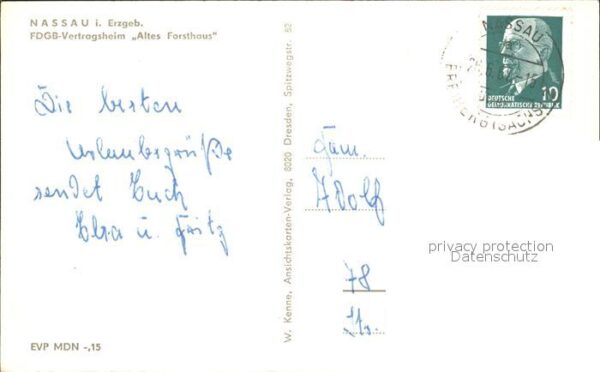 NASSAU i. Erzgeb.
FDGB-Vertragsheim „Altes Forsthaus"
Die besten
Urlaubsgrüße
sendet Euch
Elsa u. Fritz
EVP MDN -,15
W. Kenne, Ansichtskarten-Verlag, 8020 Dresden, Spitzwegstr. 52
NASSAU
FREIBERG (SACHS)
10
DEUTSCHE
DEMOKRATISCHE REPUBLIK
Fam.
Adolf
78
privacy protection
Datenschutz